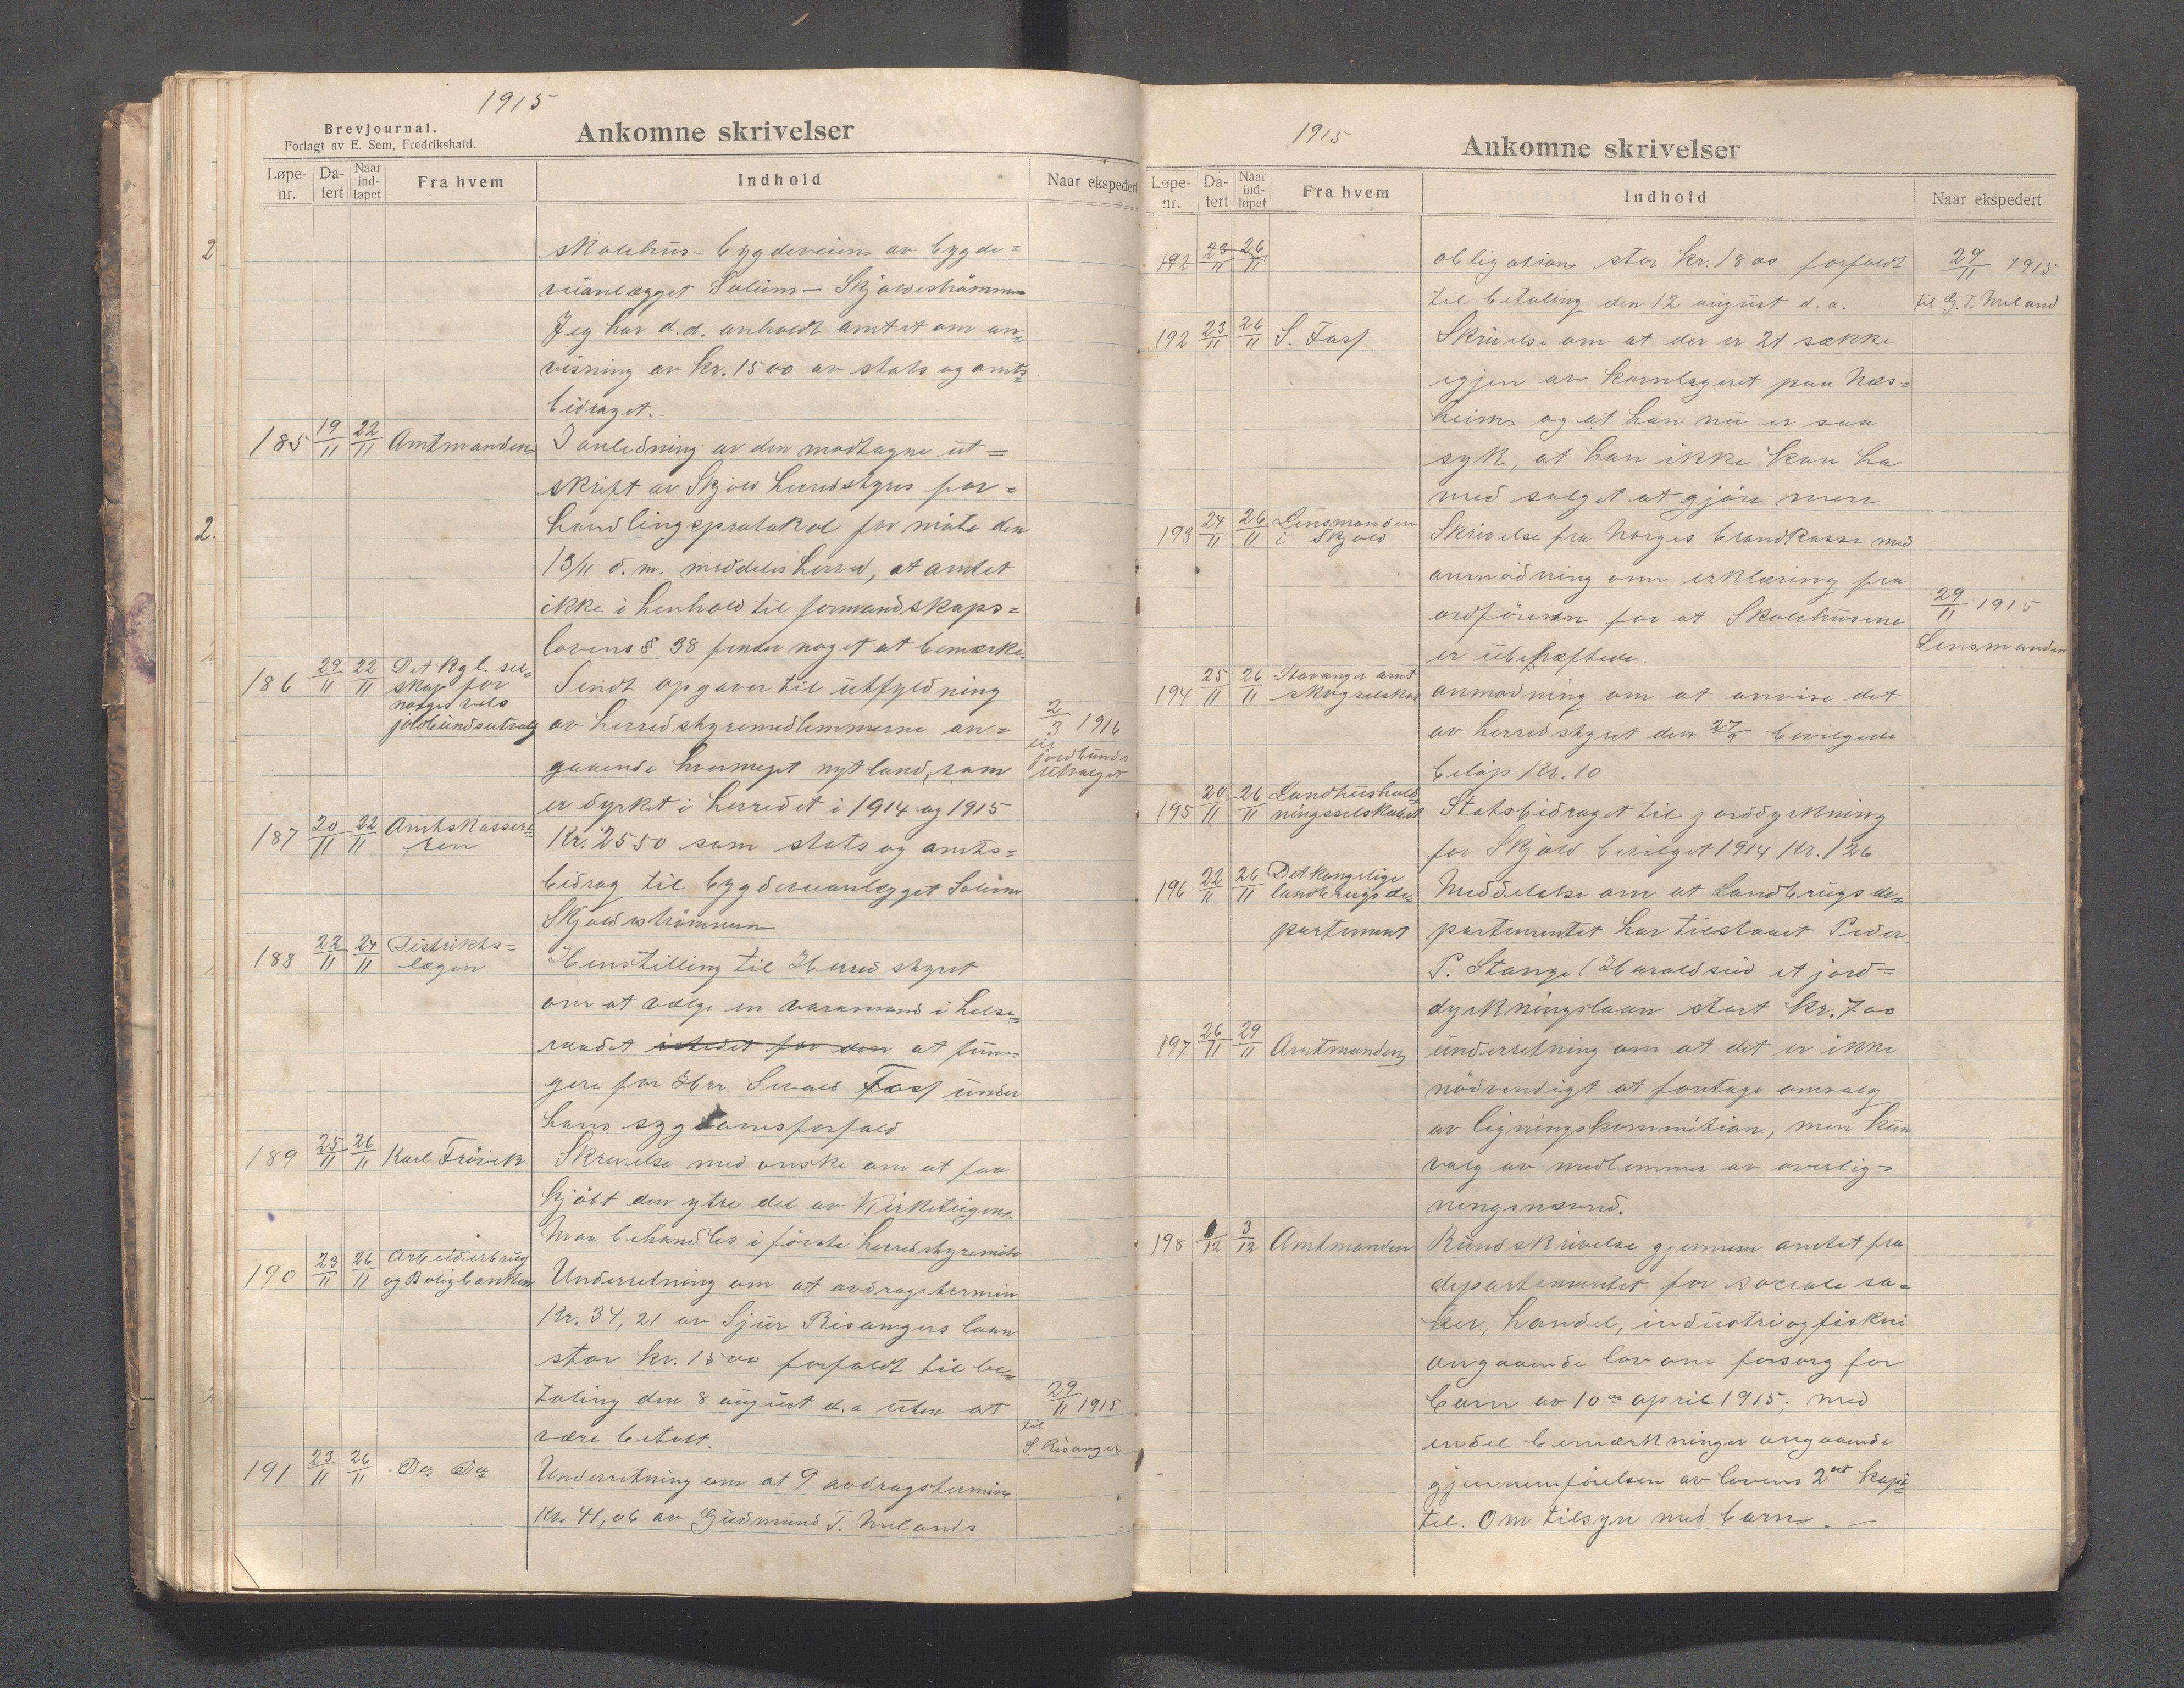 1915
Brevjournal.
Forlagt av E. Sem, Fredrikshald.
Ankomne skrivelser
Løpe-nr. Da-tert Naar ind-løpet Fra hvem Indhold Naar ekspedert
skolehus - bygdeveien av bygde=
veianlægget Soleim - Skjoldestrømmen
Jeg har d.d. anholdt amtet om an=
visning av kr. 1500 av stats og amts=
bidraget.
185 19/11 22/11 Amtmanden I anledning av den modtagne ut=
skrift av Skjold herredstyres for=
handlingsprotokol for møte den
13/11 d.m. meddeles herved, at amtet
ikke i henhold til formandskaps=
lovens § 38 finder noget at bemærke.
186 29/11 22/11 Det kgl. sel=
skap for
norges vels
jordbundsutvalg
Sendt opgaver til utfyldning
av herredstyremedlemmerne an=
gaaende hvormeget nyt land, som
er dyrket i herredet i 1914 og 1915
2/3 1916
til
jordbunds
utvalget
187 20/11 22/11 Amtskassere=
ren
Kr. 2550 som stats og amts=
bidrag til bygdeveianlegget Soleim
Skjoldestrømmen
188 22/11 24/11 Distrikts=
lægen
Henstilling til Herredstyret
om at vælge en varamand i helse=
raadet istedet for den at fun=
gere for Hr. Sivald Foss under
hans sygdomsforfald
189 25/11 26/11 Karl Frövik Skrivelse med onske om at faa
kjöbt den ytre del av Kirketeigen.
Maa behandles i förste herredstyremöte
190 23/11 26/11 Arbeiderbrug
og Boligbanken
Underretning om at avdragstermin
Kr. 34,21 av Sjur Risangers laan
stor kr. 1500 forfaldt til be=
taling den 8 august d.a uten at
være betalt.
29/11 1915
til
S. Risanger
191 23/11 26/11 Do Do Underretning om at 9 avdragstermin
Kr. 41,06 av Gudmund T. Melands
1915
Ankomne skrivelser
Løpe-nr. Da-tert Naar ind-løpet Fra hvem Indhold Naar ekspedert
192 23/11 26/11 obligation stor kr. 1800 forfaldt
til betaling den 12 august d.a.
29/11 1915
til G.T. Meland
192 23/11 26/11 S. Foss Skrivelse om at der er 21 sække
igjen av kornlageret paa Næs=
heim og at han nu er saa
syk, at han ikke kan ha
med salget at gjöre mere
193 24/11 26/11 Lensmanden
i Skjold
Skrivelse fra Norges brandkasse med
anmodning om erklæring fra
ordföreren for at Skolehusene
er ubehæftede.
29/11 1915
Lensmanden
194 25/11 26/11 Stavanger amt
skogselskap
anmodning om at anvise det
av herredstyret den 27/9 bevilgede
belöp Kr. 10
195 20/11 26/11 Landhushold=
ningsselskabet
Statsbidraget til jorddyrkning
for Skjold bevilget 1914 Kr. 126
196 22/11 26/11 Det kongelige
landbrugsde
partement
Meddelelse om at Landbrugsde=
partementet har tilstaaet Peder
P. Stange (Haraldseid et jord=
dyrkningslaan stort kr. 700
197 26/11 29/11 Amtmanden underretning om at det er ikke
nödvendigt at foretage omvalg
av ligningskommition, men kun
valg av medlemmer av overlig=
ningsnævnd.
198 1/12 3/12 Amtmanden Rundskrivelse gjennem amtet fra
departementet for sociale sa=
ker, handel, industri og fiskeri
angaaende lov om forsorg for
barn av 10de april 1915; med
endel bemærkninger angaaende
gjennemförelsen av lovens 2det kapi=
tel. Om tilsyn med barn. —